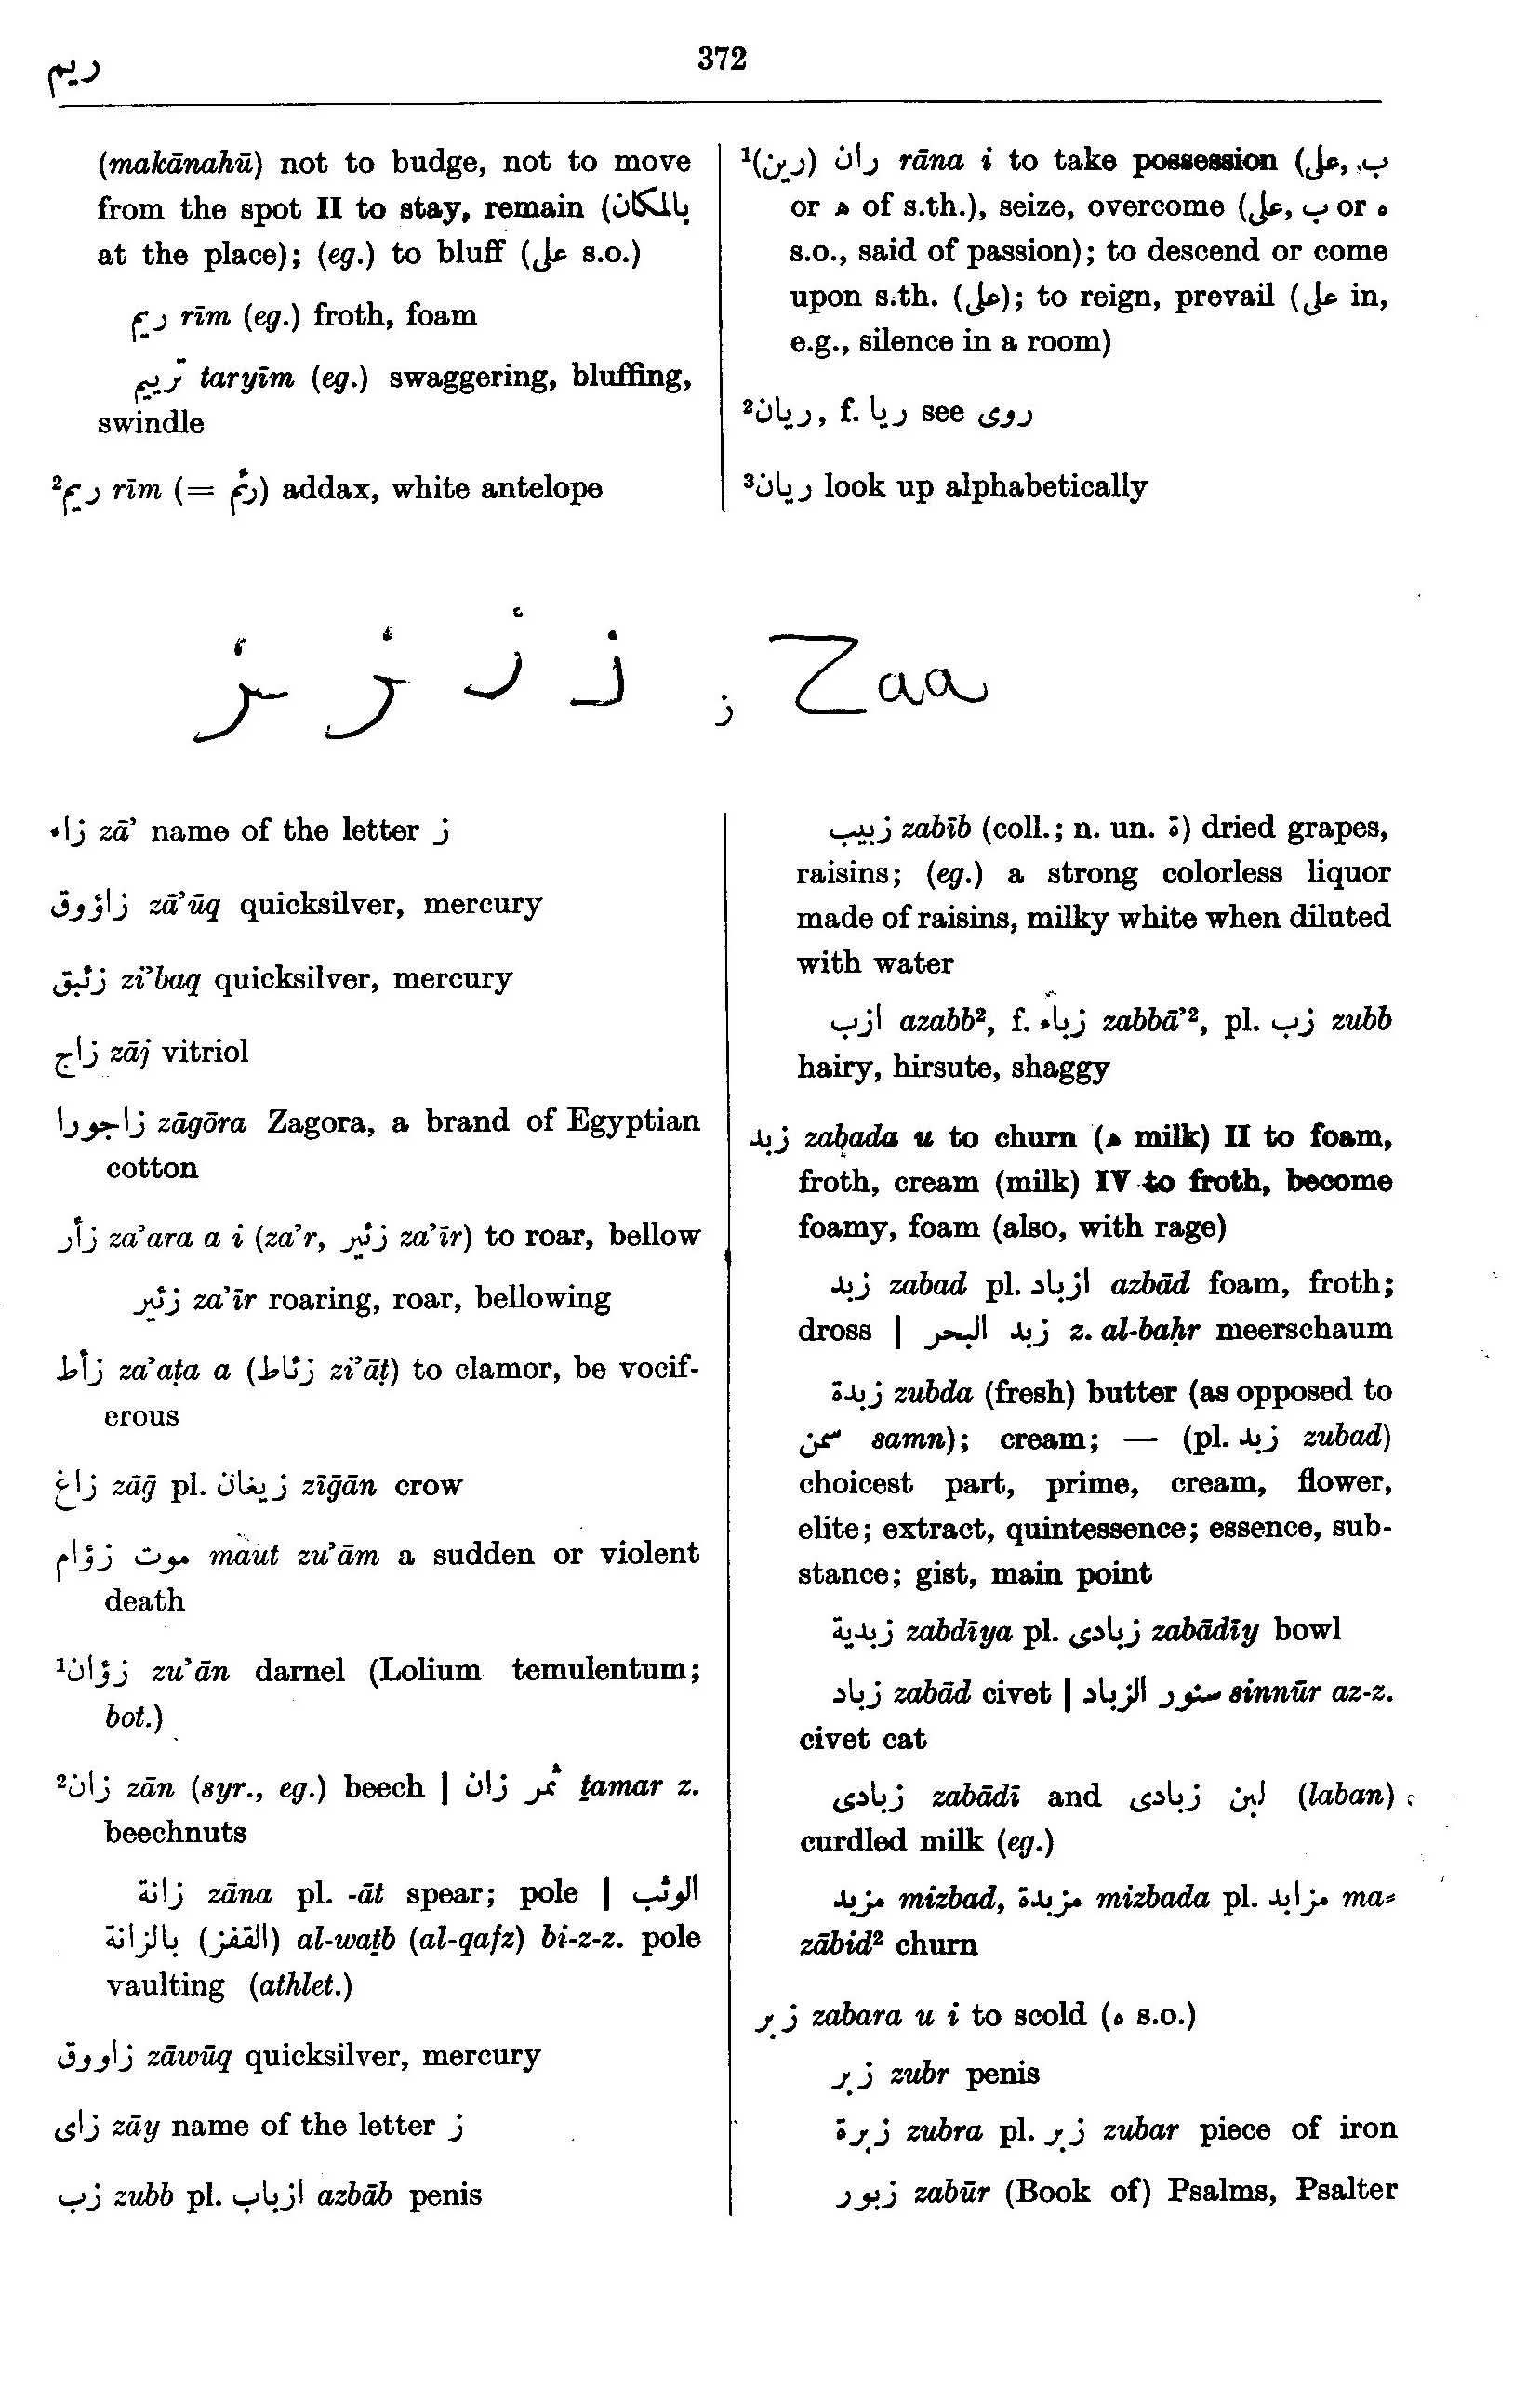 ريم
372
(makānahū) not to budge, not to move
from the spot II to stay, remain (بالمكان
at the place); (eg.) to bluff (على s.o.)
ريم rīm (eg.) froth, foam
تريم taryīm (eg.) swaggering, bluffing,
swindle
²ريم rīm (= رئم) addax, white antelope
¹(رين) ران rāna i to take possession (ب, على,
or ه of s.th.), seize, overcome (على, ب or ه
s.o., said of passion); to descend or come
upon s.th. (على); to reign, prevail (على in,
e.g., silence in a room)
²ريان, f. ريا see روى
³ريان look up alphabetically
ز , Zaa
زاء zā’ name of the letter ز
زاؤوق zā’ūq quicksilver, mercury
زئبق zi’baq quicksilver, mercury
زاج zāj vitriol
زاجورا zāgōra Zagora, a brand of Egyptian
cotton
زأر za’ara a i (za’r, زئير za’īr) to roar, bellow
زئير za’īr roaring, roar, bellowing
زأط za’aṭa a (زئاط zi’āṭ) to clamor, be vocif-
erous
زاغ zāḡ pl. زيغان zīḡān crow
موت زؤام maut zu’ām a sudden or violent
death
¹زؤان zu’ān darnel (Lolium temulentum;
bot.)
²زان zān (syr., eg.) beech | ثمر زان ṯamar z.
beechnuts
زانة zāna pl. -āt spear; pole | الوثب
(القفز) بالزانة al-waṯb (al-qafz) bi-z-z. pole
vaulting (athlet.)
زاووق zāwūq quicksilver, mercury
زاى zāy name of the letter ز
زب zubb pl. ازباب azbāb penis
زبيب zabīb (coll.; n. un. ة) dried grapes,
raisins; (eg.) a strong colorless liquor
made of raisins, milky white when diluted
with water
ازب azabb², f. زباء zabbā’², pl. زب zubb
hairy, hirsute, shaggy
زبد zabada u to churn (ه milk) II to foam,
froth, cream (milk) IV to froth, become
foamy, foam (also, with rage)
زبد zabad pl. ازباد azbād foam, froth;
dross | زبد البحر z. al-baḥr meerschaum
زبدة zubda (fresh) butter (as opposed to
سمن samn); cream; — (pl. زبد zubad)
choicest part, prime, cream, flower,
elite; extract, quintessence; essence, sub-
stance; gist, main point
زبدية zabdīya pl. زبادى zabādīy bowl
زباد zabād civet | سنور الزباد sinnūr az-z.
civet cat
زبادى zabādī and لبن زبادى (laban)
curdled milk (eg.)
مزبد mizbad, مزبدة mizbada pl. مزابد ma=
zābid² churn
زبر zabara u i to scold (ه s.o.)
زبر zubr penis
زبرة zubra pl. زبر zubar piece of iron
زبور zabūr (Book of) Psalms, Psalter